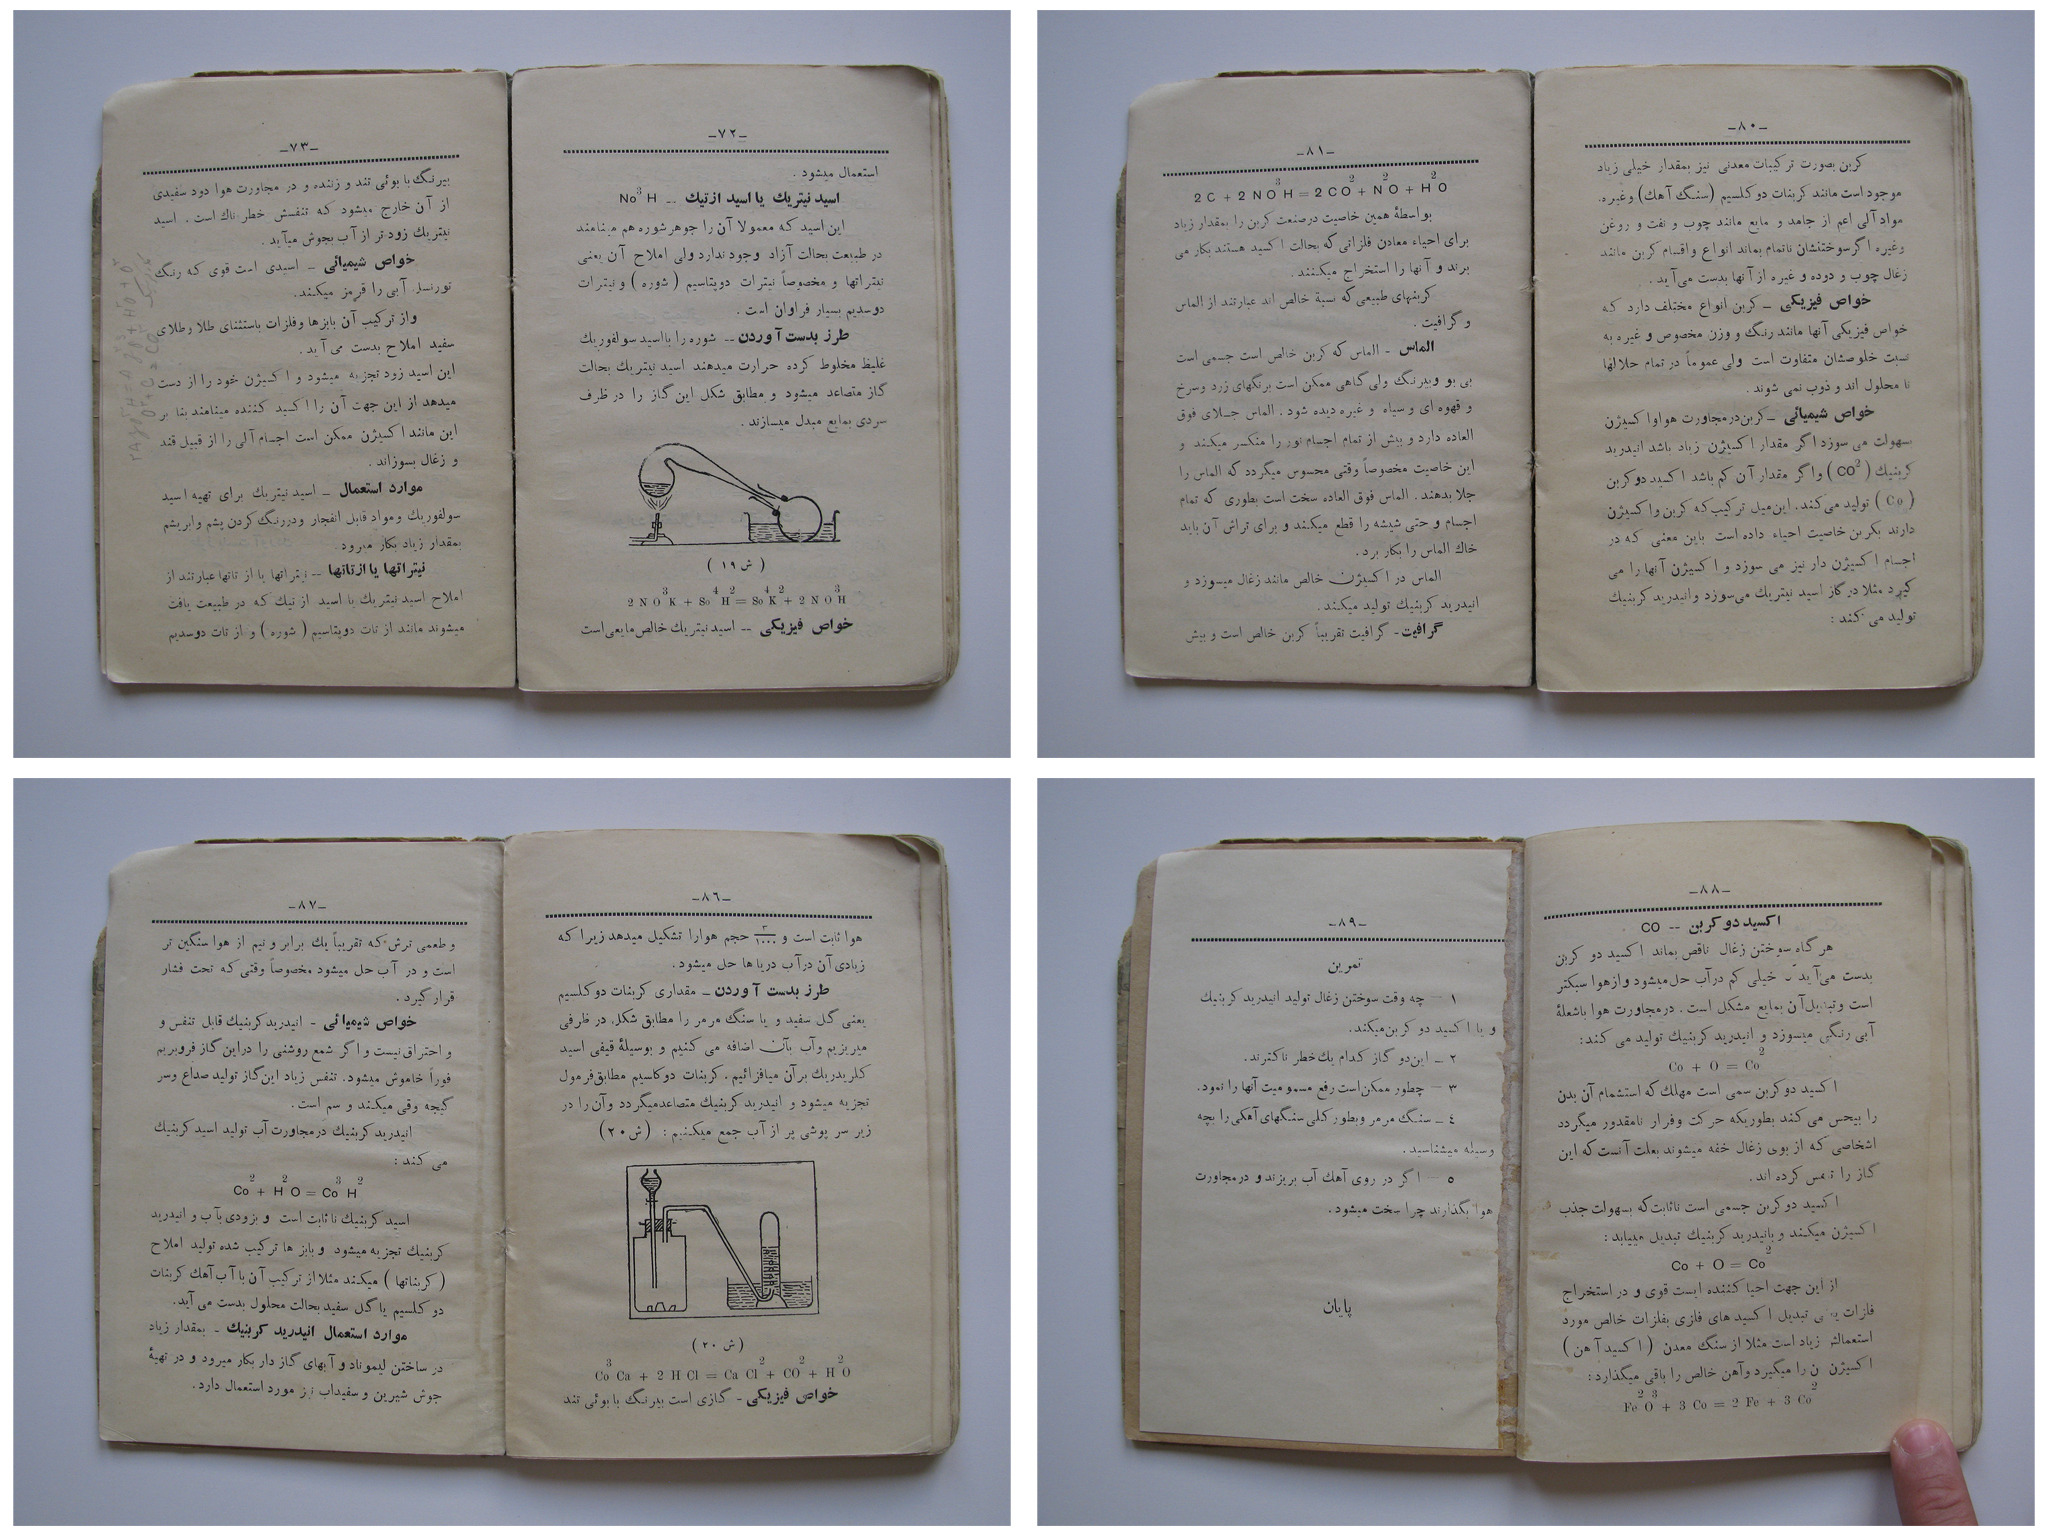 ـ٧٢ـ
استعمال میشود .
اسید نیتریك یا اسید ازتیك ــ No³H
این اسید که معمولا آن را جوهر شوره هم مینامند
در طبیعت بحالت آزاد وجود ندارد ولی املاح آن یعنی
نیتراتها و مخصوصاً نیترات دوپتاسیم ( شوره ) و نیترات
دوسدیم بسیار فراوان است .
طرز بدست آوردن ــ شوره را با اسید سولفوریك
غلیظ مخلوط کرده حرارت میدهند اسید نیتریك بحالت
گاز متصاعد میشود و مطابق شکل این گاز را در ظرف
سردی بمایع مبدل میسازند .
( ش ١٩ )
2 N O³K + So⁴H² = So⁴K² + 2 N O³H
خواص فیزیکی ــ اسید نیتریك خالص مایعی است
ـ٧٣ـ
بیرنگ با بوئی تند و زننده و در مجاورت هوا دود سفیدی
از آن خارج میشود که تنفسش خطر ناك است . اسید
نیتریك زود تر از آب بجوش میآید .
خواص شیمیائی ــ اسیدی است قوی که رنگ
تورنسل آبی را قرمز میکند .
واز ترکیب آن بابازها وفلزات باستثنای طلا وطلای
سفید املاح بدست می آید .
این اسید زود تجزیه میشود و اکسیژن خود را از دست
میدهد از این جهت آن را اکسید کننده مینامند بنا بر
این مانند اکسیژن ممکن است اجسام آلی را از قبیل قند
و زغال بسوزاند .
موارد استعمال ــ اسید نیتریك برای تهیه اسید
سولفوریك و مواد قابل انفجار ودررنگ کردن پشم وابریشم
بمقدار زیاد بکار میرود .
نیتراتها یا ازتاتها ــ نیتراتها یا از تاتها عبارتند از
املاح اسید نیتریك یا اسید از تیك که در طبیعت یافت
میشوند مانند از تات دوپتاسیم ( شوره ) و از تات دوسدیم
ـ٨٠ـ
کربن بصورت ترکیبات معدنی نیز بمقدار خیلی زیاد
موجود است مانند کربنات دو کلسیم (سنگ آهك) وغیره.
مواد آلی اعم از جامد و مایع مانند چوب و نفت و روغن
وغیره اگر سوختنشان ناتمام بماند انواع واقسام کربن مانند
زغال چوب و دوده و غیره از آنها بدست می آید .
خواص فیزیکی ــ کربن انواع مختلف دارد که
خواص فیزیکی آنها مانند رنگ و وزن مخصوص و غیره به
نسبت خلوصشان متفاوت است ولی عموماً در تمام حلالها
نا محلول اند و ذوب نمی شوند .
خواص شیمیائی ــ کربن در مجاورت هوا و اکسیژن
بسهولت می سوزد اگر مقدار اکسیژن زیاد باشد انیدرید
کربنیك ( CO² ) و اگر مقدار آن کم باشد اکسید دو کربن
( Co ) تولید می کنند . این میل ترکیب که کربن و اکسیژن
دارند بکر بن خاصیت احیاء داده است باین معنی که در
اجسام اکسیژن دار نیز می سوزد و اکسیژن آنها را می
گیرد مثلا در گاز اسید نیتریك می سوزد و انیدرید کربنیك
تولید می کند :
ـ٨١ـ
2 C + 2 N O³H = 2 C O² + N² O + H² O
بواسطهٔ همین خاصیت در صنعت کربن را بمقدار زیاد
برای احیاء معادن فلزاتی که بحالت اکسید هستند بکار می
برند و آنها را استخراج میکنند .
کربنهای طبیعی که نسبة خالص اند عبارتند از الماس
و گرافیت .
الماس ـ الماس که کربن خالص است جسمی است
بی بو و بیرنگ ولی گاهی ممکن است برنگهای زرد وسرخ
و قهوه ای و سیاه و غیره دیده شود . الماس جلای فوق
العاده دارد و بیش از تمام اجسام نور را منکسر میکند و
این خاصیت مخصوصاً وقتی محسوس میگردد که الماس را
جلا بدهند . الماس فوق العاده سخت است بطوری که تمام
اجسام و حتی شیشه را قطع میکند و برای تراش آن باید
خاك الماس را بکار برد .
الماس در اکسیژن خالص مانند زغال میسوزد و
انیدرید کربنیك تولید میکند .
گرافیت ـ گرافیت تقریباً کربن خالص است و بیش
ـ٨٦ـ
هوا ثابت است و ٣/١٠٠٠٠ حجم هوا را تشکیل میدهد زیرا که
زیادی آن در آب دریا ها حل میشود .
طرز بدست آوردن ــ مقداری کربنات دو کلسیم
یعنی گل سفید و یا سنگ مرمر را مطابق شکل در ظرفی
میریزیم وآب بآن اضافه می کنیم و بوسیلهٔ قیفی اسید
کلریدریك برآن میافزائیم . کربنات دو کلسیم مطابق فرمول
تجزیه میشود و انیدرید کربنیك متصاعد میگردد وآن را در
زیر سر پوشی پر از آب جمع میکنیم : (ش ٢٠)
( ش ٢٠ )
Co³ Ca + 2 H Cl = Ca Cl² + CO² + H² O
خواص فیزیکی ـ گازی است بیرنگ با بوئی تند
ـ٨٧ـ
و طعمی ترش که تقریباً یك برابر و نیم از هوا سنگین تر
است و در آب حل میشود مخصوصاً وقتی که تحت فشار
قرار گیرد .
خواص شیمیائی ـ انیدرید کربنیك قابل تنفس و
و احتراق نیست و اگر شمع روشنی را دراین گاز فرو بریم
فوراً خاموش میشود . تنفس زیاد این گاز تولید صداع وسر
گیجه وقی میکند و سم است .
انیدرید کربنیك در مجاورت آب تولید اسید کربنیك
می کند :
Co² + H² O = Co³ H²
اسید کربنیك نا ثابت است و بزودی بآب و انیدرید
کربنیك تجزیه میشود و باباز ها ترکیب شده تولید املاح
( کربناتها ) میکند مثلا از ترکیب آن با آب آهك کربنات
دو کلسیم یا گل سفید بحالت محلول بدست می آید .
موارد استعمال انیدرید کربنیك ـ بمقدار زیاد
در ساختن لیموناد و آبهای گاز دار بکار میرود و در تهیهٔ
جوش شیرین و سفیداب نیز مورد استعمال دارد .
ـ٨٨ـ
اکسید دو کربن ــ CO
هر گاه سوختن زغال ناقص بماند اکسید دو کربن
بدست می آید خیلی کم درآب حل میشود و از هوا سبکتر
است وتبدیل آن بمایع مشکل است . در مجاورت هوا باشعلهٔ
آبی رنگی میسوزد و انیدرید کربنیك تولید می کند :
Co + O = Co²
اکسید دو کربن سمی است مهلك که استشمام آن بدن
را بیحس می کند بطوریکه حرکت وفرار نامقدور میگردد
اشخاصی که از بوی زغال خفه میشوند بعلت آنست که این
گاز را تنفس کرده اند .
اکسید دو کربن جسمی است ناثابت که بسهولت جذب
اکسیژن میکند و بانیدرید کربنیك تبدیل مییابد :
Co + O = Co²
از این جهت احیا کننده ایست قوی و در استخراج
فلزات یعنی تبدیل اکسید های فلزی بفلزات خالص مورد
استعمالش زیاد است مثلا از سنگ معدن ( اکسید آهن )
اکسیژن آن را میگیرد وآهن خالص را باقی میگذارد :
Fe² O³ + 3 Co = 2 Fe + 3 Co²
ـ٨٩ـ
تمرین
١ ـ چه وقت سوختن زغال تولید انیدرید کربنیك
و یا اکسید دو کربن میکند .
٢ ـ این دو گاز کدام یك خطر ناکترند .
٣ ـ چطور ممکن است رفع مسمومیت آنها را نمود .
٤ ـ سنگ مرمر وبطور کلی سنگهای آهکی را بچه
وسیله میشناسید .
٥ ـ اگر در روی آهك آب بریزند و در مجاورت
هوا بگذارند چرا سخت میشود .
پایان